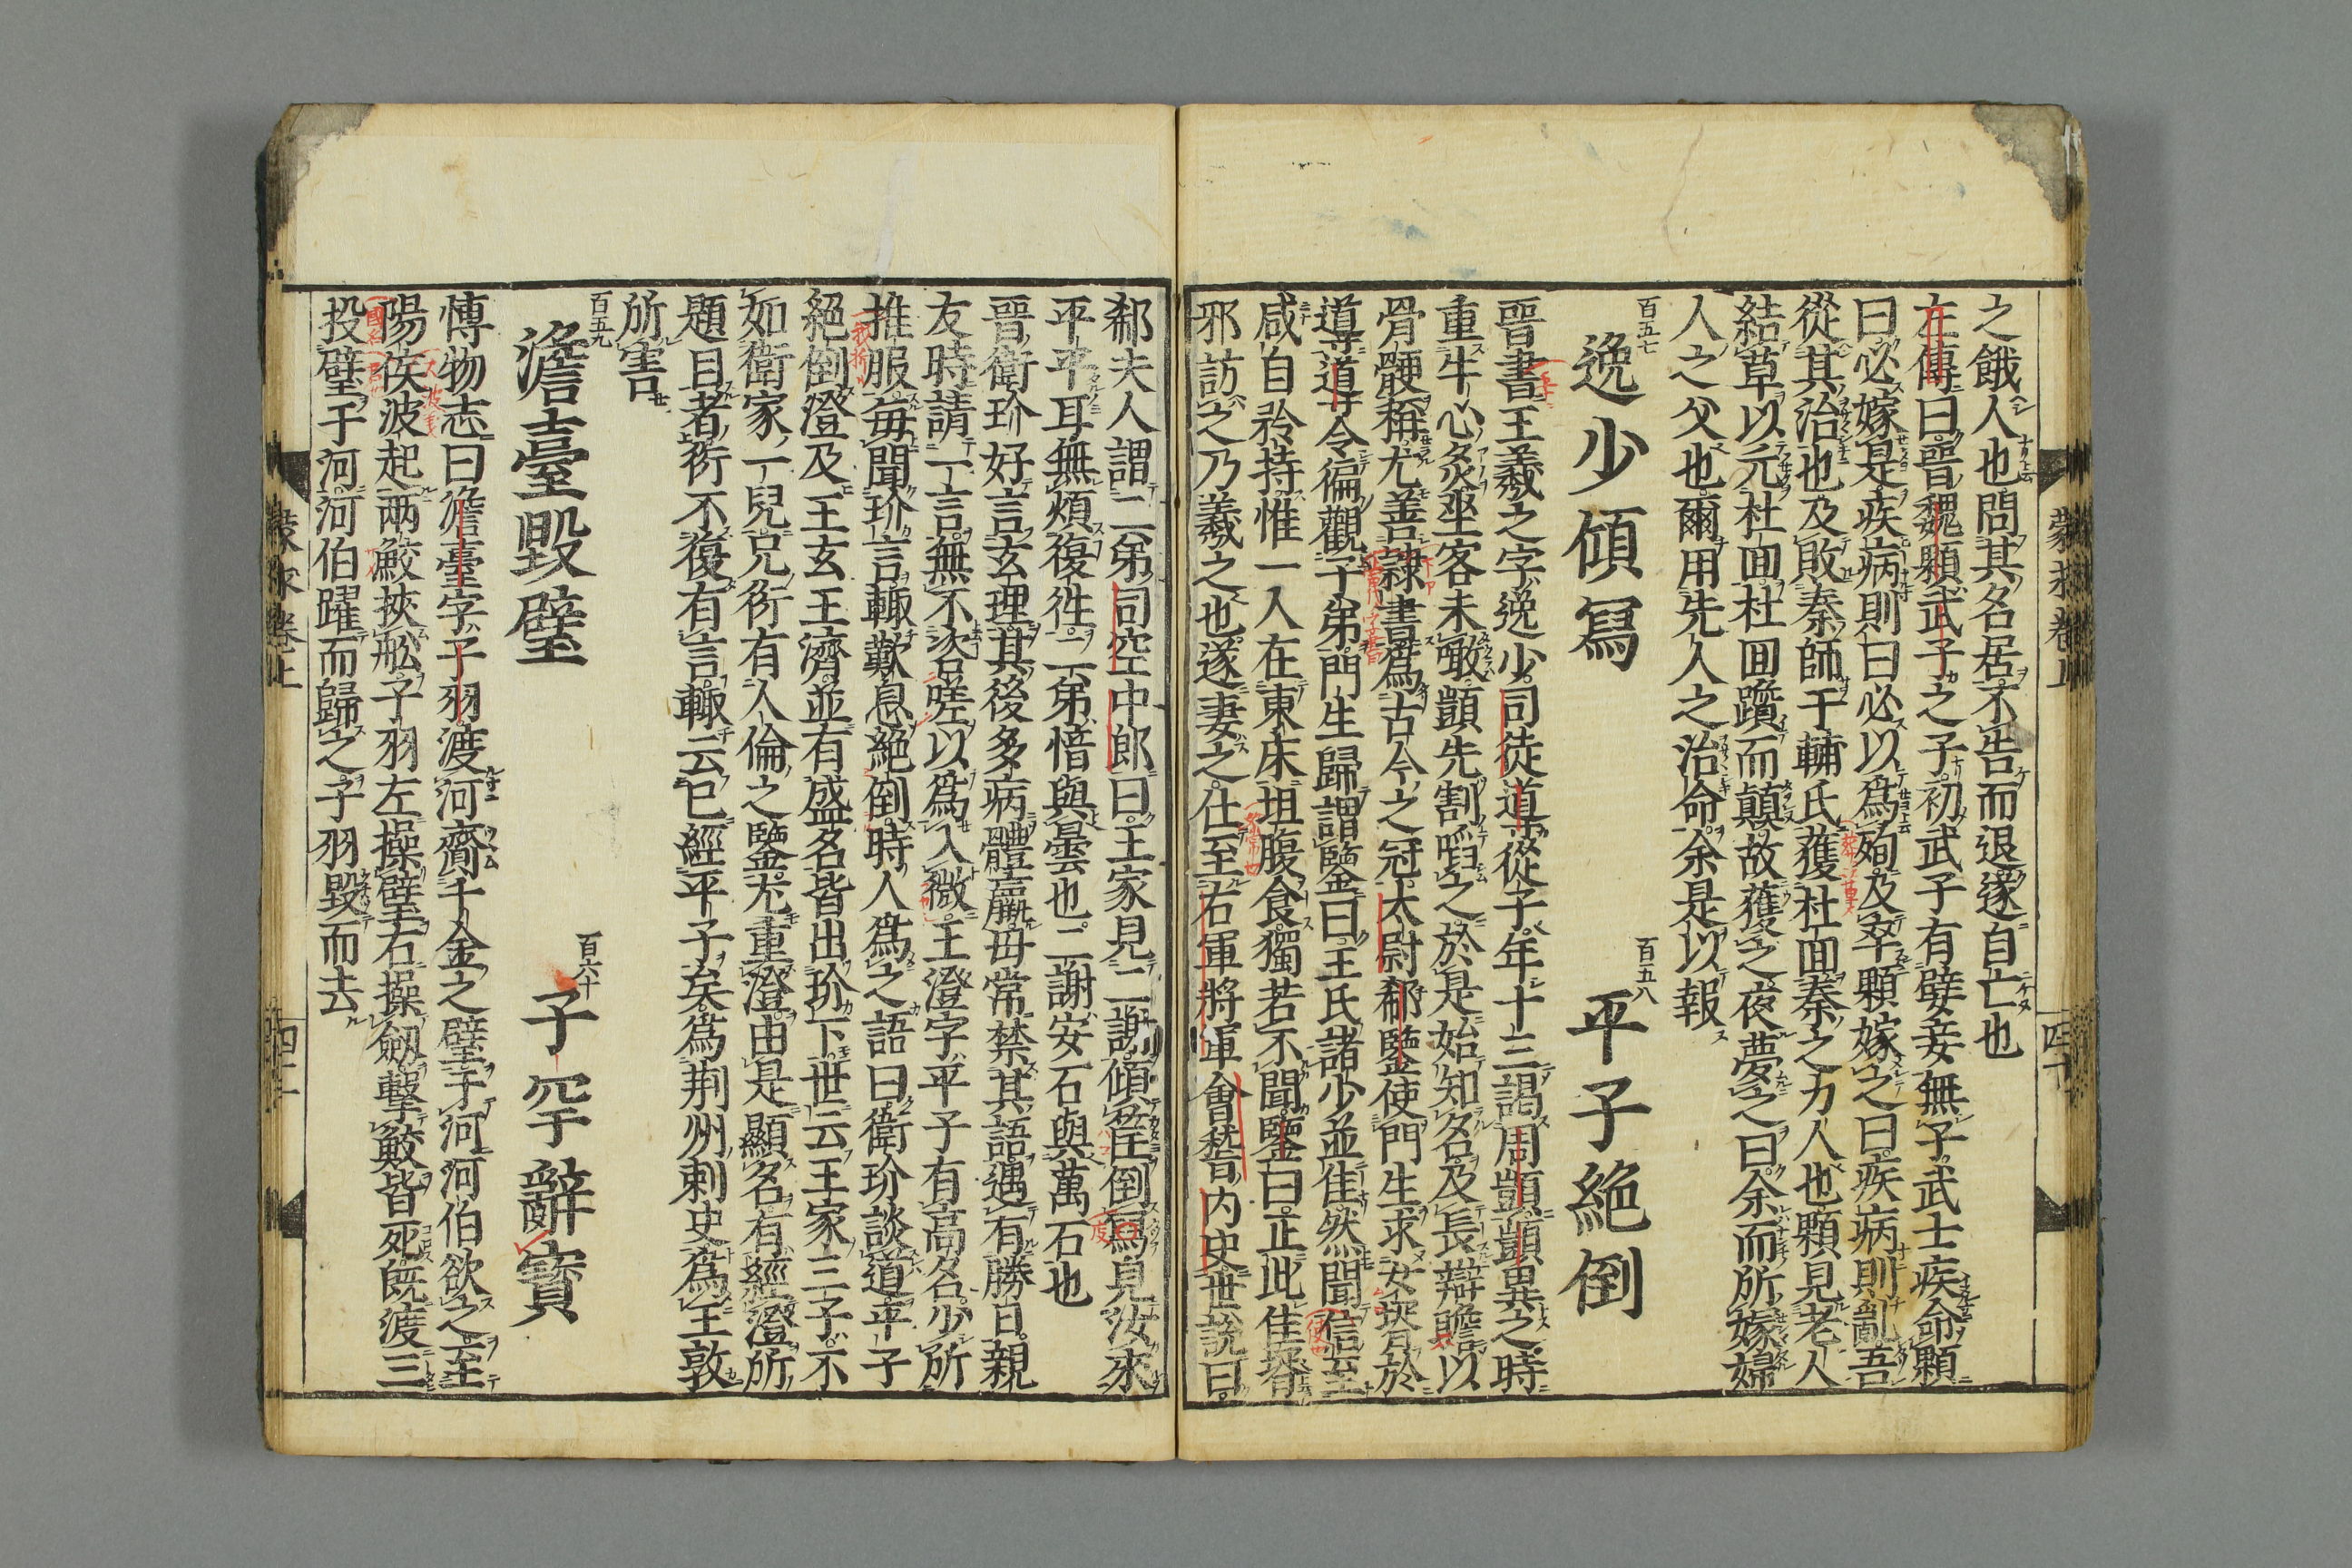 蒙求卷上
四十
之餓人也問其名居不告而退遂自亡也
左傳曰晉魏顆武子之子初武子有嬖妾無子武士疾命顆
曰必嫁是疾病則曰必以爲殉及卒顆嫁之曰疾病則亂吾
從其治也及敗秦師于輔氏獲杜回秦之力人也顆見老人
結草以亢杜回杜回躓而顛故獲之夜夢之曰余而所嫁婦
人之父也爾用先人之治命余是以報
百五七
逸少傾寫
百五八
平子絶倒
晉書王羲之字逸少司徒道導從子年十三謁周顗顗異之時
重牛心炙坐客未噉顗先割啗之於是始知名及長辯贍以
骨骾稱尤善隷書爲古今之冠太尉郗鑒使門生求女壻於
導導令徧觀子弟門生歸謂鑒曰王氏諸少並佳然聞信至
咸自矜持惟一人在東床坦腹食獨若不聞鑒曰正此佳壻
邪訪之乃羲之也遂妻之仕至右軍將軍會嵇内史世説曰
郗夫人謂二弟司空中郎曰王家見二謝傾筐倒寫見汝來
平平耳無煩復徃二弟愔與曇也二謝安石與萬石也
晉衛玠好言玄理其後多病體羸毋常禁其語遇有勝日親
友時請一言無不咨嗟以爲入微王澄字平子有高名少所
推服每聞玠言輙歎息絶倒時人爲之語曰衛玠談道平子
絶倒澄及王玄王濟並有盛名皆出玠下世云王家三子不
如衛家一兒兄衍有人倫之鑒尤重澄由是顯名有經澄所
題目者衍不復有言輙云已經平子矣爲荆州刺史爲王敦
所害
百五九
澹臺毀璧
百六十
子罕辭寳
愽物志曰澹臺字子羽渡河齎千金之璧于河河伯欲之至
陽侯波起兩鮫挾舩子羽左操璧右操劔擊鮫皆死旣渡三
投璧于河河伯躍而歸之子羽毀而去